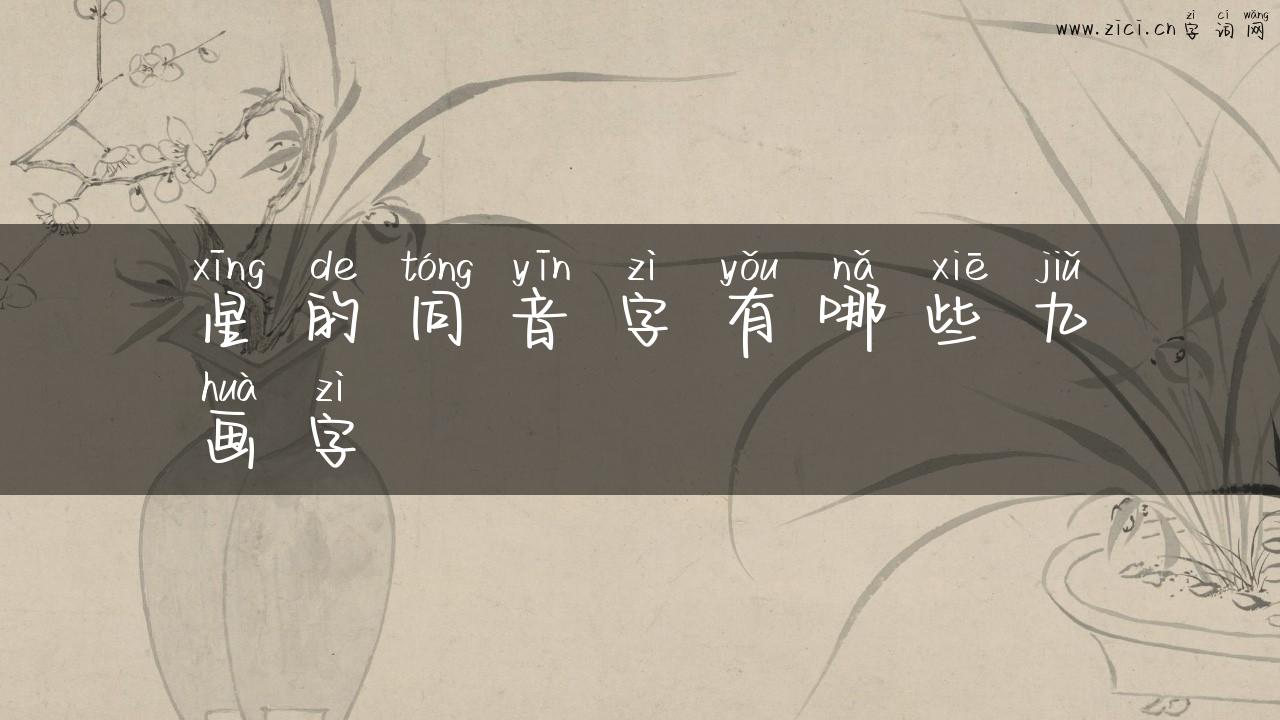 zì cí wǎng
www.zici.cn 字 词 网
xīng de tóng yīn zì yǒu nǎ xiē jiǔ
星 的 同 音 字 有 哪 些 九
huà zì
画 字